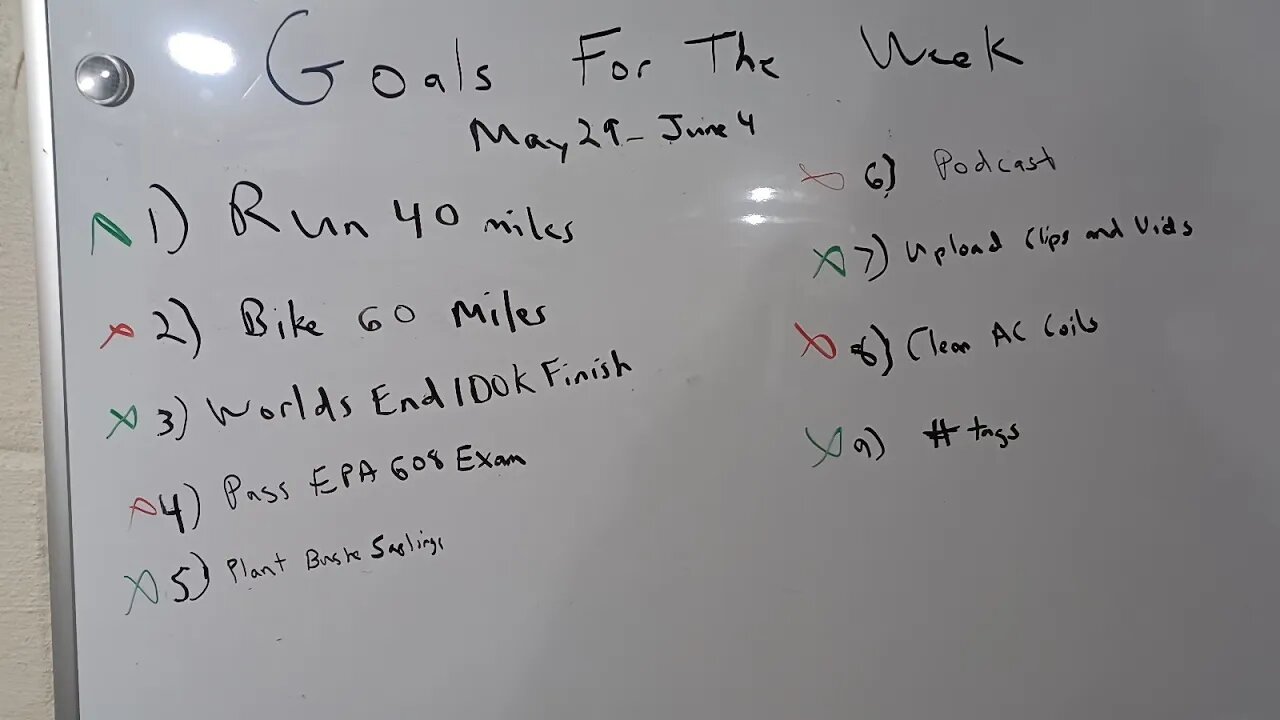 Goals For The Week
May 29 - June 4
1) Run 40 miles
2) Bike 60 Miles
3) Worlds End 100K Finish
4) Pass EPA 608 Exam
5) Plant
6) Podcast
7) Upload Clips and Vids
8) Clean AC Coils
9) # tags